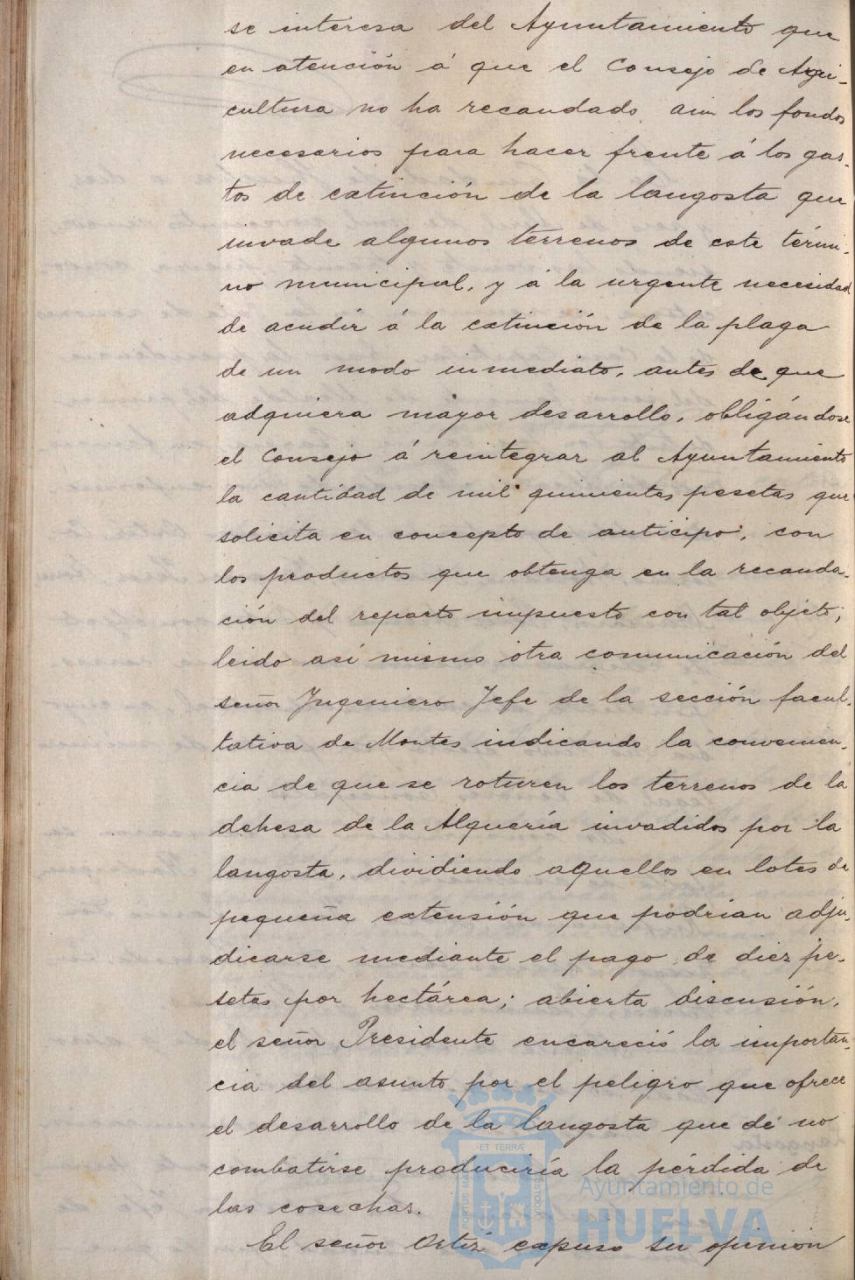 se interesa del Ayuntamiento que
en atención á que el Consejo de Agri-
cultura no ha recaudado aun los fondos
necesarios para hacer frente á los gas-
tos de extinción de la langosta que
invade algunos terrenos de este térmi-
no municipal, y á la urgente necesidad
de acudir á la extinción de la plaga
de un modo inmediato, antes de que
adquiera mayor desarrollo, obligándose
el Consejo á reintegrar al Ayuntamiento
la cantidad de mil quinientas pesetas que
solicita en concepto de anticipo, con
los productos que obtenga en la recauda-
ción del reparto impuesto con tal objeto;
leido así mismo otra comunicación del
señor Ingeniero Jefe de la sección facul-
tativa de Montes indicando la convenien-
cia de que se roturen los terrenos de la
dehesa de la Alquería invadidos por la
langosta, dividiendo aquellos en lotes de
pequeña extensión que podrían adju-
dicarse mediante el pago de diez pe-
setas por hectárea; abierta discusión,
el señor Presidente encareció la importan-
cia del asunto por el peligro que ofrece
el desarrollo de la langosta que de no
combatirse produciría la pérdida de
las cosechas.
El señor Ortiz expuso su opinión
ET TERRÆ
Ayuntamiento de
HUELVA